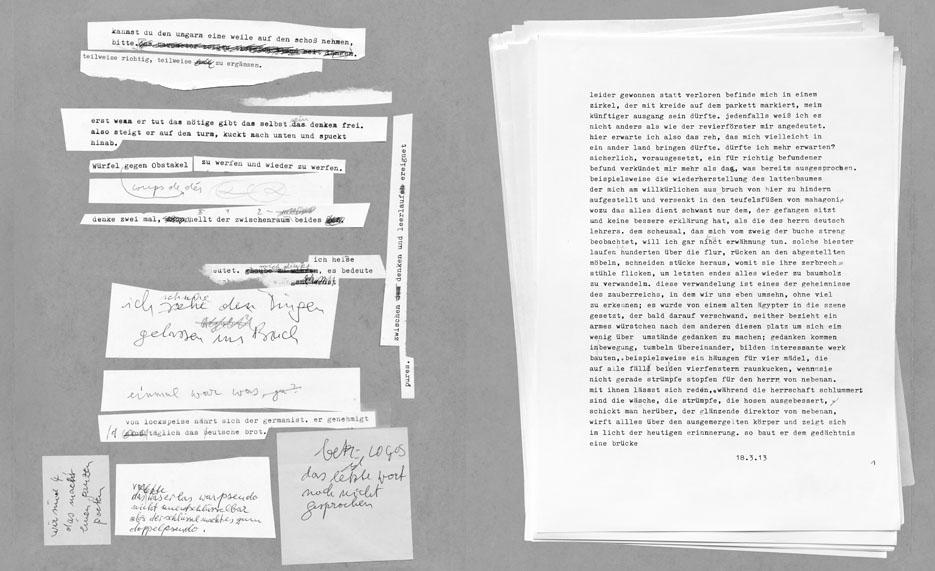 kannst du den ungarn eine weile auf den schoß nehmen,
bitte.
teilweise richtig, teilweise zu ergänzen.
erst wenn er tut das nötige gibt das selbst das denken frei.
also steigt er auf den turm, kuckt nach unten und spuckt
hinab.
Würfel gegen Obstakel
zu werfen und wieder zu werfen.
coups de dés
denke zwei mal, hellt der zwischenraum beides
ich heiße
eutet. es bedeute
zwischen denken und leerlauf ereignet
pures.
ich den Dingen
gelassen ins Buch
einmal war was,
von lockspeise nährt sich der germanist. er genehmigt
täglich das deutsche brot.
wir sind 4
das macht
einen
poeten
das war pseudo
nicht unentschlüsselbar
doppelpseudo.
betr. LOGOS
das letzte wort
noch nicht
gesprochen
leider gewonnen statt verloren befinde mich in einem
zirkel, der mit kreide auf dem parkett markiert, mein
künftiger ausgang sein dürfte. jedenfalls weiß ich es
nicht anders als wie der revierförster mir angedeutet.
hier erwarte ich also das reh, das mich vielleicht in
ein ander land bringen dürfte. dürfte ich mehr erwarten?
sicherlich, vorausgesetzt, ein für richtig befundener
befund verkündet mir mehr als das, was bereits ausgesprochen.
beispielsweise die wiederherstellung des lattenbaumes
der mich am willkürlichen aus bruch von hier zu hindern
aufgestellt und versenkt in den teufelsfüßen von mahagoni
wozu das alles dient schwant nur dem, der gefangen sitzt
und keine bessere erklärung hat, als die des herrn deutsch
lehrers. dem scheusal, das mich vom zweig der buche streng
beobachtet, will ich gar nicht erwähnung tun. solche biester
laufen hunderten über die flur, rücken an den abgestellten
möbeln, schneiden stücke heraus, womit sie ihre zerbroch
stühle flicken, um letzten endes alles wieder zu baumholz
zu verwandeln. diese verwandlung ist eines der geheimnisse
des zauberreichs, in dem wir uns eben umsehn, ohne viel
zu erkennen; es wurde von einem alten ägypter in die szene
gesetzt, der bald darauf verschwand. seither bezieht ein
armes würstchen nach dem anderen diesen platz um sich eim
wenig über umstände gedanken zu machen; gedanken kommen
inbewegung, tumbeln übereinander, bilden interessante werk
bauten,.beispielsweise ein häusgen für vier mädel, die
auf alle fälle beiden vierfenstern rauskucken, wennsie
nicht gerade strümpfe stopfen für den herrn von nebenan.
mit ihnen lässt sich reden,.während die herrschaft schlummert
sind die wäsche, die strümpfe, die hosen ausgebessert,
schickt man herüber, der glänzende direktor von nebenan,
wirft alles über den ausgemergelten körper und zeigt sich
im licht der heutigen erinnerung. so baut er dem gedächtnis
eine brücke
18.3.13
1